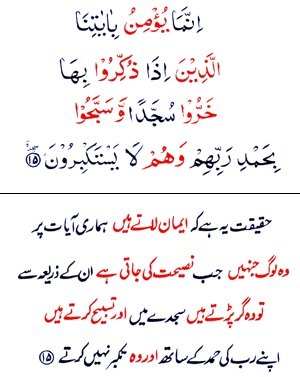 اِنَّمَا يُؤْمِنُ بِاٰيٰتِنَا
الَّذِيْنَ اِذَا ذُكِّرُوْا بِهَا
خَرُّوْا سُجَّدًا وَّ سَبَّحُوْا
بِحَمْدِ رَبِّهِمْ وَهُمْ لَا يَسْتَكْبِرُوْنَ ۩ ﴿۱۵﴾
حقیقت یہ ہے کہ ایمان لاتے ہیں ہماری آیات پر
وہ لوگ جنہیں جب نصیحت کی جاتی ہے ان کے ذریعہ سے
تو وہ گر پڑتے ہیں سجدے میں اور تسبیح کرتے ہیں
اپنے رب کی حمد کے ساتھ اور وہ تکبر نہیں کرتے ﴿۱۵﴾